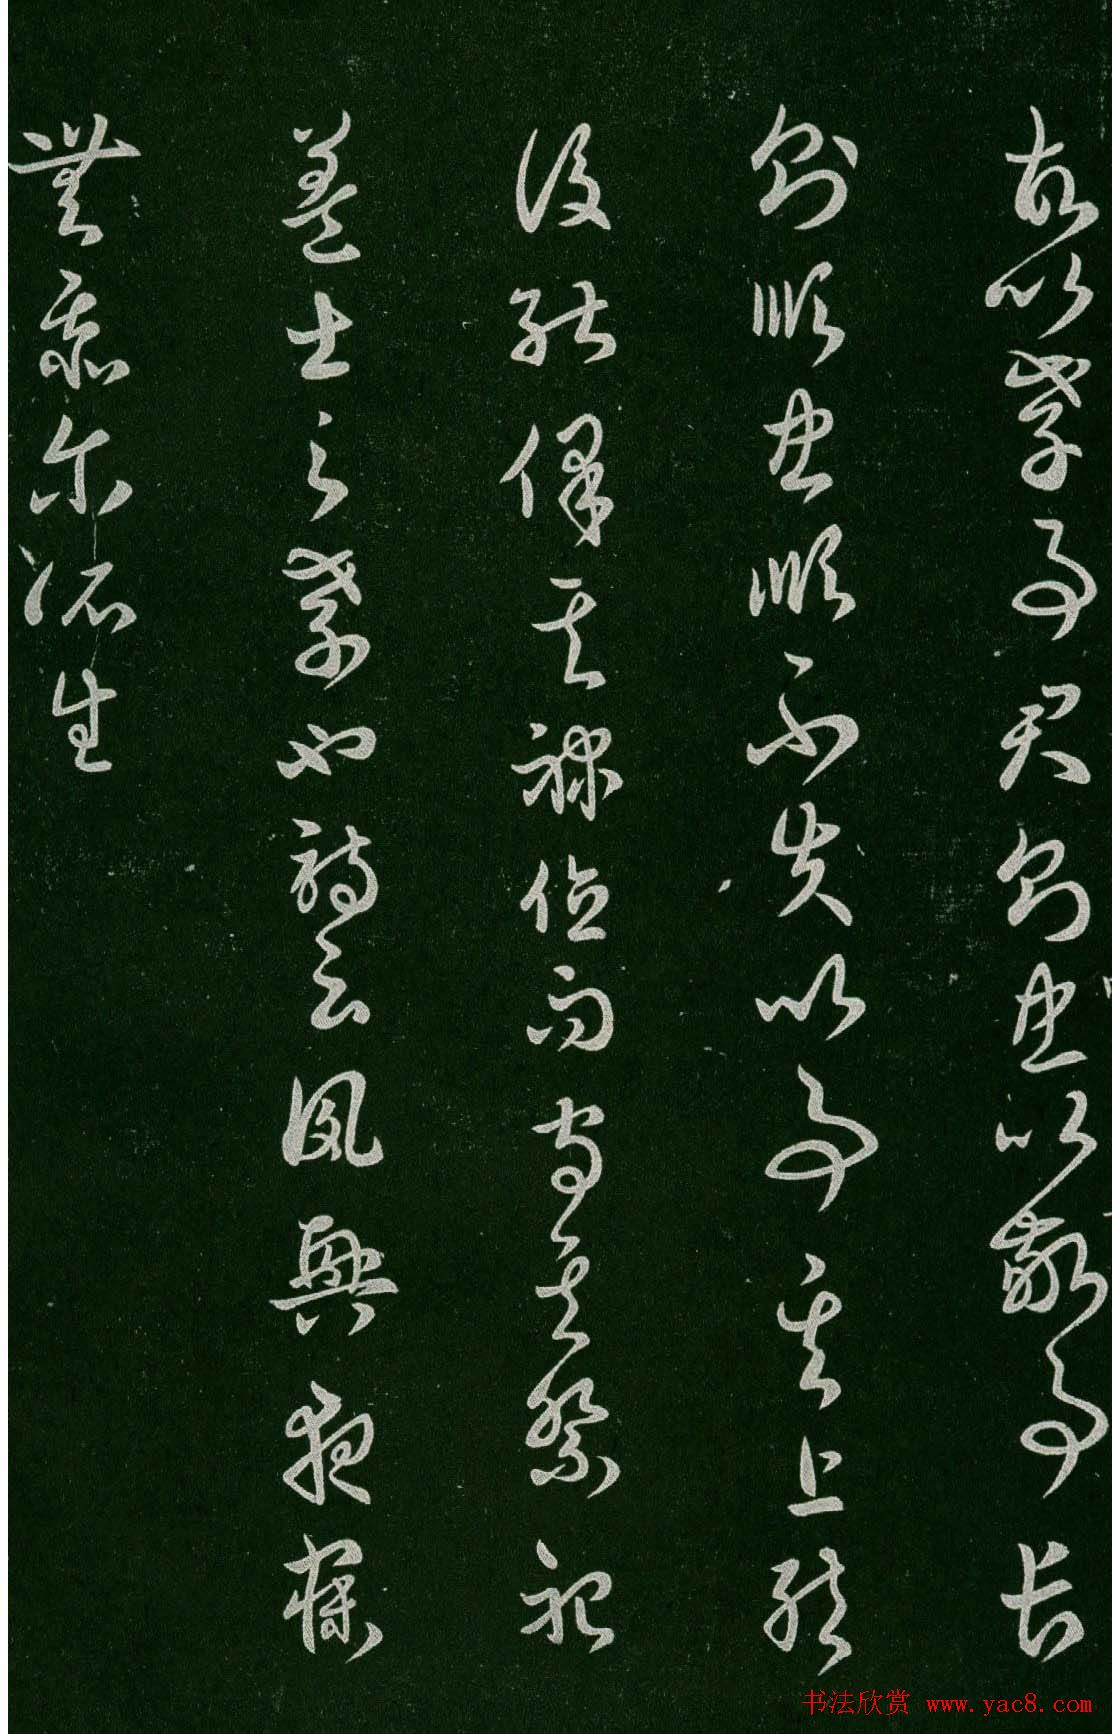 故以孝事君則忠以敬事長
則順忠順不失以事其上然
後能保其祿位而守其祭祀
蓋士之孝也詩云夙興夜寐
無忝爾所生
书法欣赏 www.yac8.com